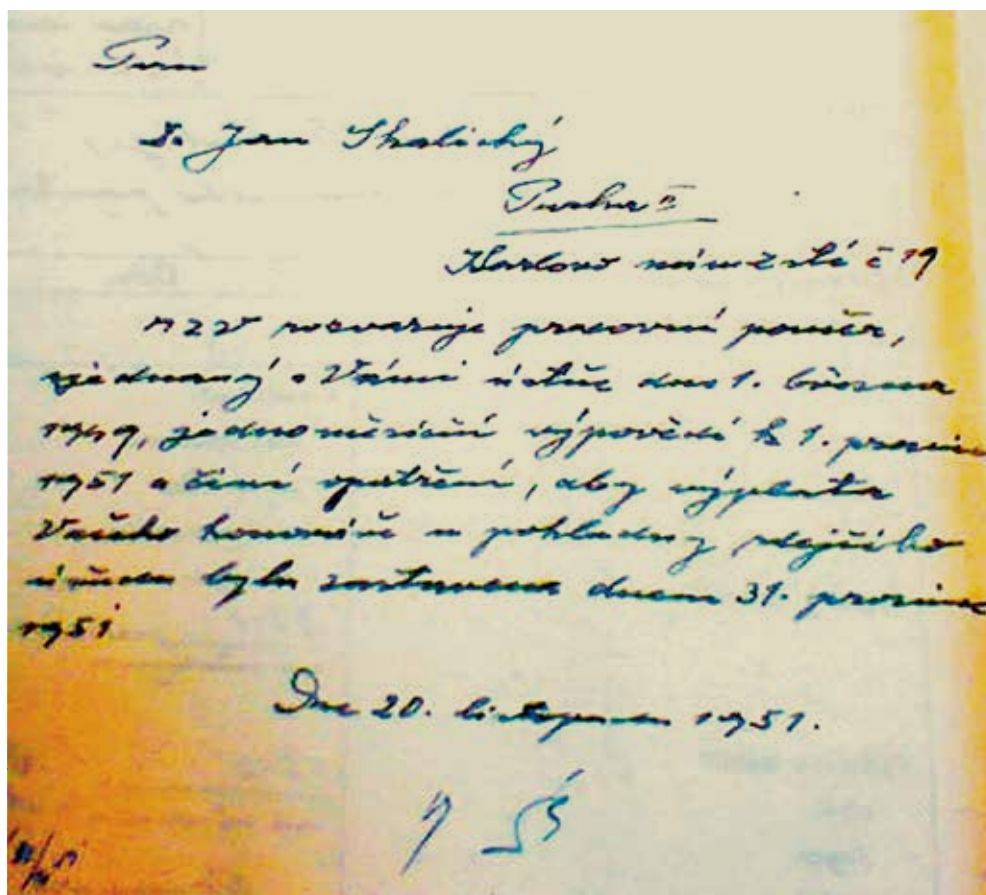 Pan
Dr Jan Skalický
Praha II
Karlovo náměstí č 19
MZV rozvazuje pracovní poměr,
sjednaný s Vámi ústně dne 1. března
1949, jednoměsíční výpovědí k 1. prosinci
1951 a činí opatření, aby výplata
Vašeho honoráře u pokladny zdejšího
úřadu byla zastavena dnem 31. prosince
1951
Dne 20. listopadu 1951.